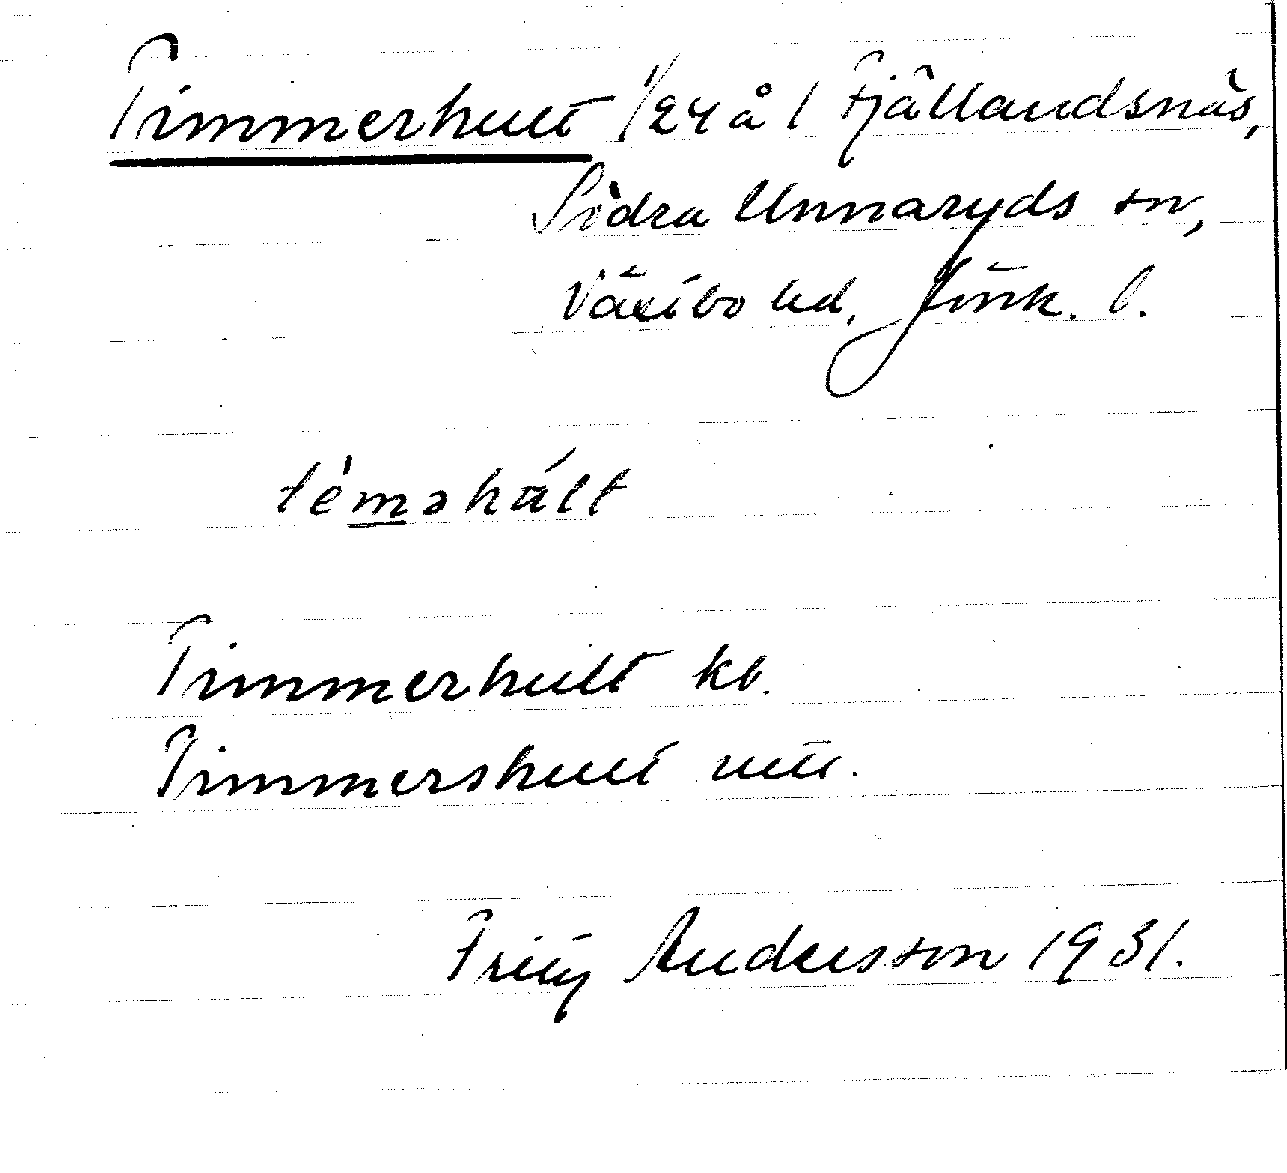 Timmerhult 1/24 å 1 Fjällandsnäs,
Södra Unnaryds sn,
Västbo hd. Jönk. l.
tèmahált
Timmerhult kb.
Timmershult utt.
Fritz Andersson 1931.